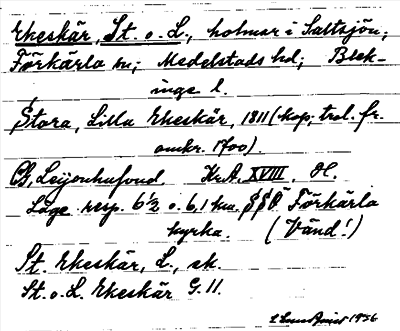 Ekeskär, St. o. L., holmar i Saltsjön;
Förkärla sn; Medelstads hd; Blek-
inge l.
Stora, Lilla Ekeskär, 1811 (kop; trol. fr.
omkr. 1700)
CG, Leijonhufvud. Kr.A. XVIII. H.
Läge resp. 6½ o. 6,1 km. SSO Förkärla
kyrka. (Vänd!)
St. Ekeskär, L., ek.
St. o. L. Ekeskär G. 11.
1936